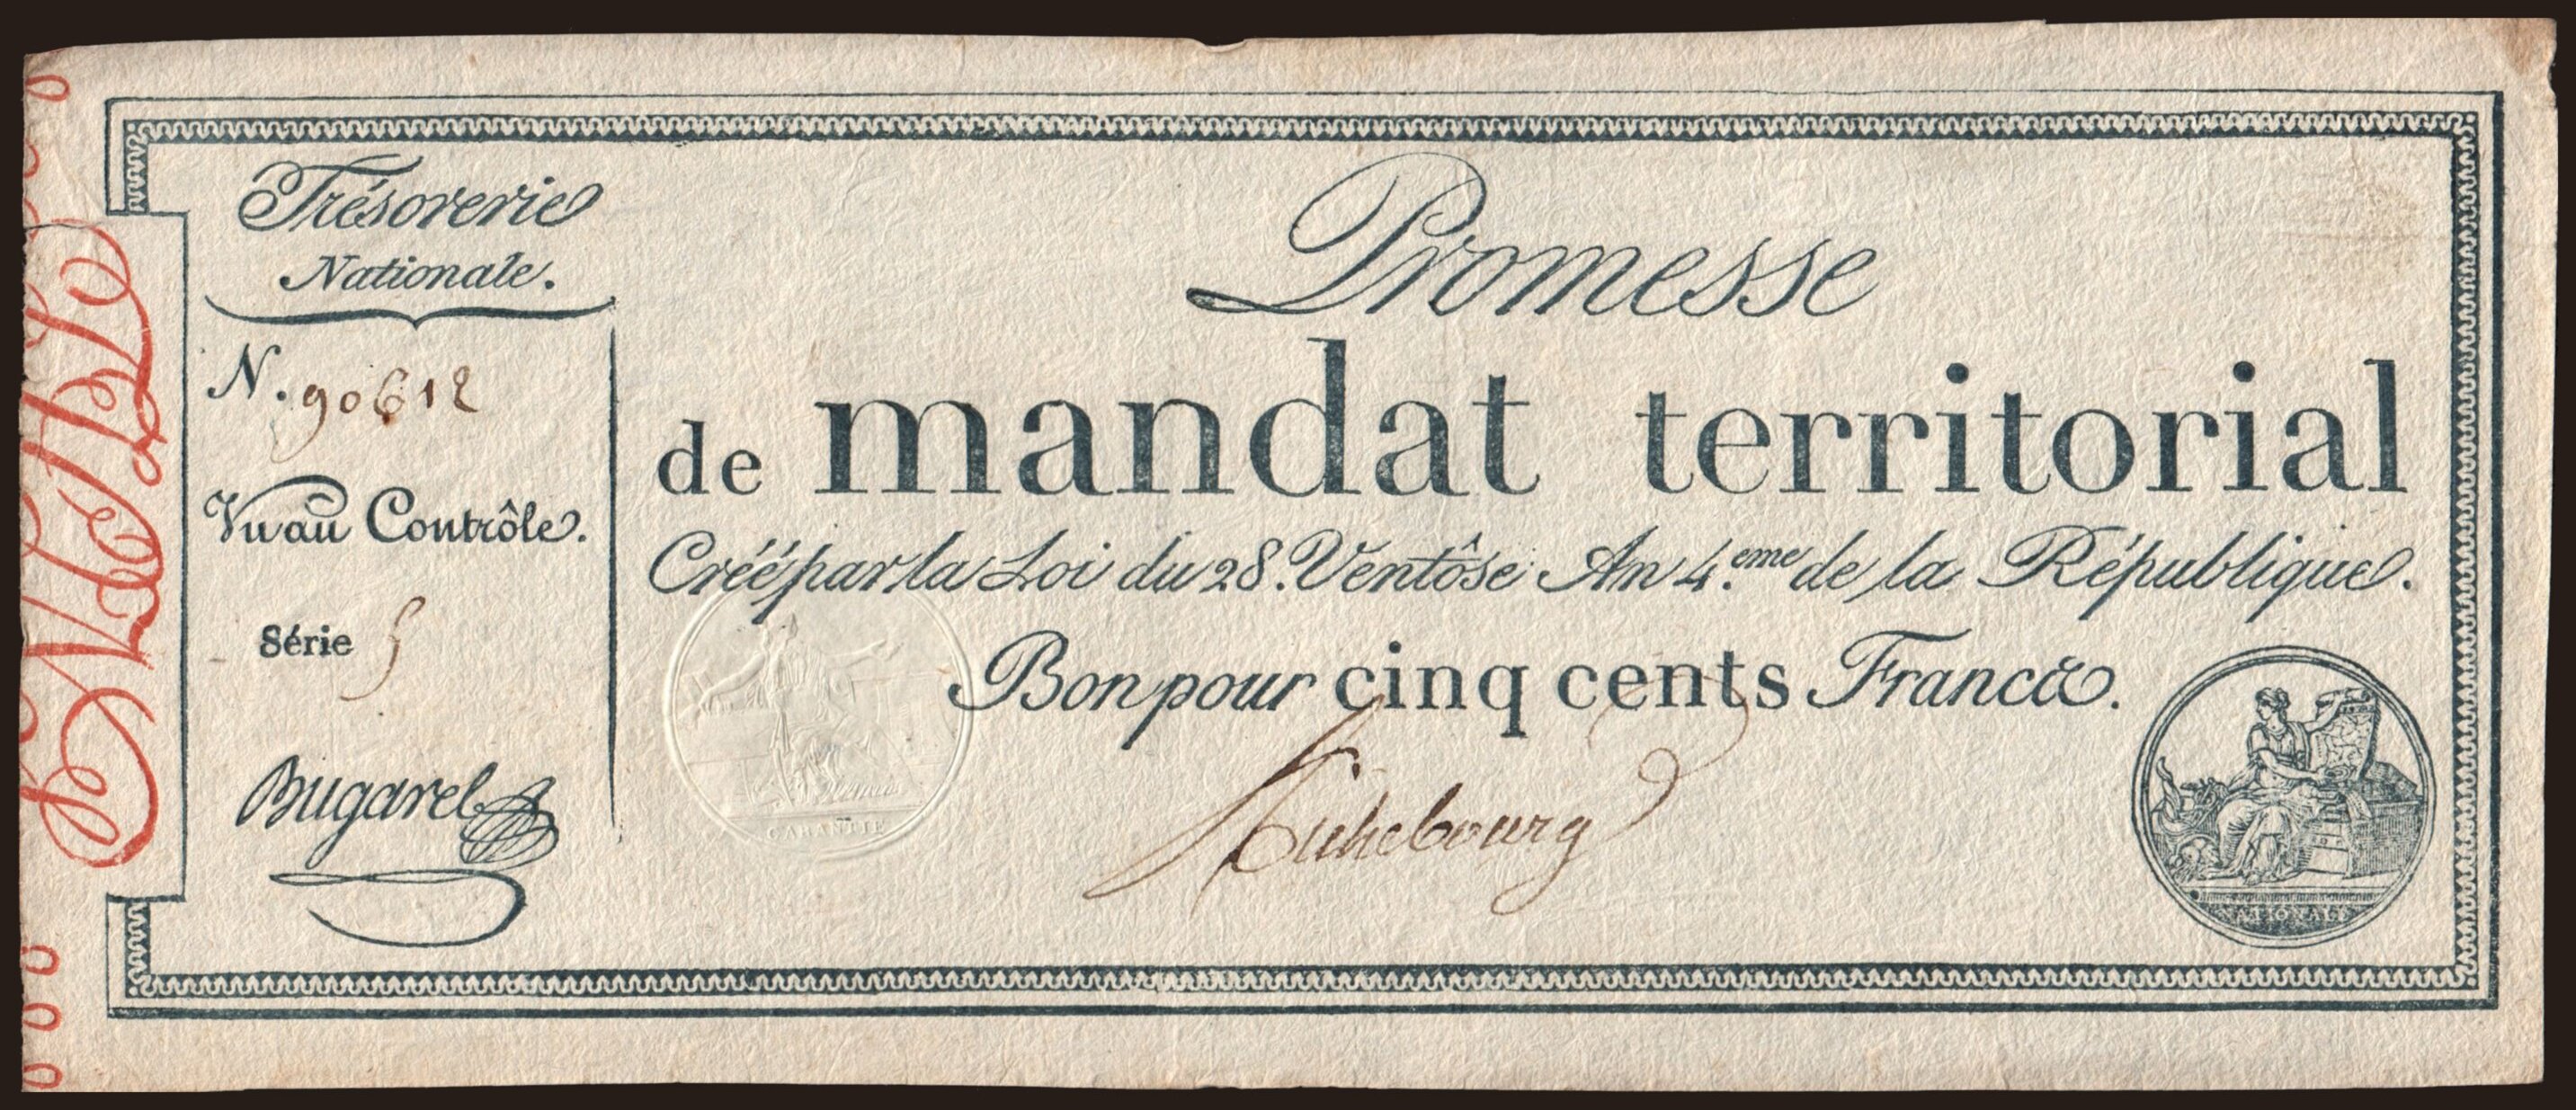 Trésorerie
Nationale.
N. 90612
Vu au Contrôle.
Série 5
Bugarel
Promesse
de mandat territorial
Créé par la Loi du 28. Ventôse An 4.eme de la République.
Bon pour cinq cents Francs.
Richebourg
GARANTIE
NATIONALE